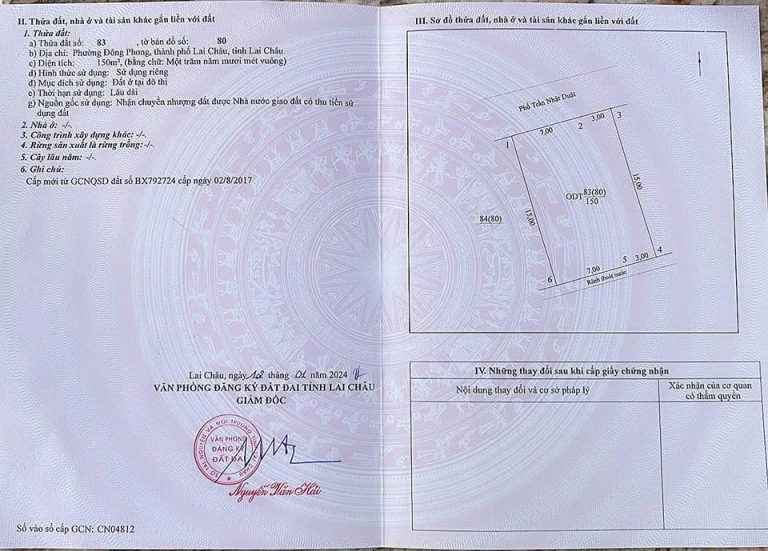 II. Thửa đất, nhà ở và tài sản khác gắn liền với đất
1. Thửa đất:
a) Thửa đất số: 83 , tờ bản đồ số: 80
b) Địa chỉ: Phường Đông Phong, thành phố Lai Châu, tỉnh Lai Châu
c) Diện tích: 150m², (bằng chữ: Một trăm năm mươi mét vuông)
d) Hình thức sử dụng: Sử dụng riêng
đ) Mục đích sử dụng: Đất ở tại đô thị
e) Thời hạn sử dụng: Lâu dài
g) Nguồn gốc sử dụng: Nhận chuyển nhượng đất được Nhà nước giao đất có thu tiền sử
dụng đất
2. Nhà ở: -/-.
3. Công trình xây dựng khác: -/-.
4. Rừng sản xuất là rừng trồng: -/-.
5. Cây lâu năm: -/-.
6. Ghi chú:
Cấp mới từ GCNQSD đất số BX792724 cấp ngày 02/8/2017
Lai Châu, ngày 12 tháng 01 năm 2024
VĂN PHÒNG ĐĂNG KÝ ĐẤT ĐAI TỈNH LAI CHÂU
GIÁM ĐỐC
SỞ TÀI NGUYÊN VÀ MÔI TRƯỜNG TỈNH LAI CHÂU
VĂN PHÒNG
ĐĂNG KÝ
ĐẤT ĐAI
Nguyễn Văn Hải
Số vào sổ cấp GCN: CN04812
III. Sơ đồ thửa đất, nhà ở và tài sản khác gắn liền với đất
Phố Trần Nhật Duật
1 7,00 2 3,00 3
15,00
15,00
ODT 83(80)
150
84(80)
6 7,00 5 3,00 4
Rãnh thoát nước
IV. Những thay đổi sau khi cấp giấy chứng nhận
Nội dung thay đổi và cơ sở pháp lý
Xác nhận của cơ quan
có thẩm quyền